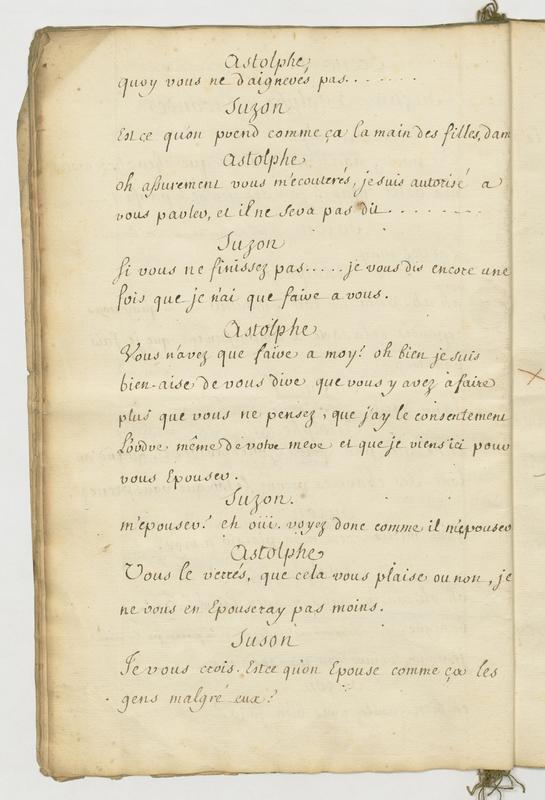 Astolphe,
quoy vous ne daignerés pas.......
Suzon
Est ce qu'on prend comme ça la main des filles, dam
Astolphe
oh assurement vous m'ecouterés, je suis autorisé a
vous parler, et il ne sera pas dit........
Suzon
si vous ne finissez pas..... je vous dis encore une
fois que je n'ai que faire a vous.
Astolphe
Vous n'avez que faire a moy! oh bien je suis
bien-aise de vous dire que vous y avez à faire
plus que vous ne pensez, que j'ay le consentement
L'ordre même de votre mere et que je viens ici pour
vous Epouser.
Suzon.
m'epouser! eh oüi. voyez donc comme il m'epouser
Astolphe
Vous le verrés, que cela vous plaise ou non, je
ne vous en Epouseray pas moins.
Suson
Je vous crois. Est ce qu'on Epouse comme ça les
gens malgré eux?